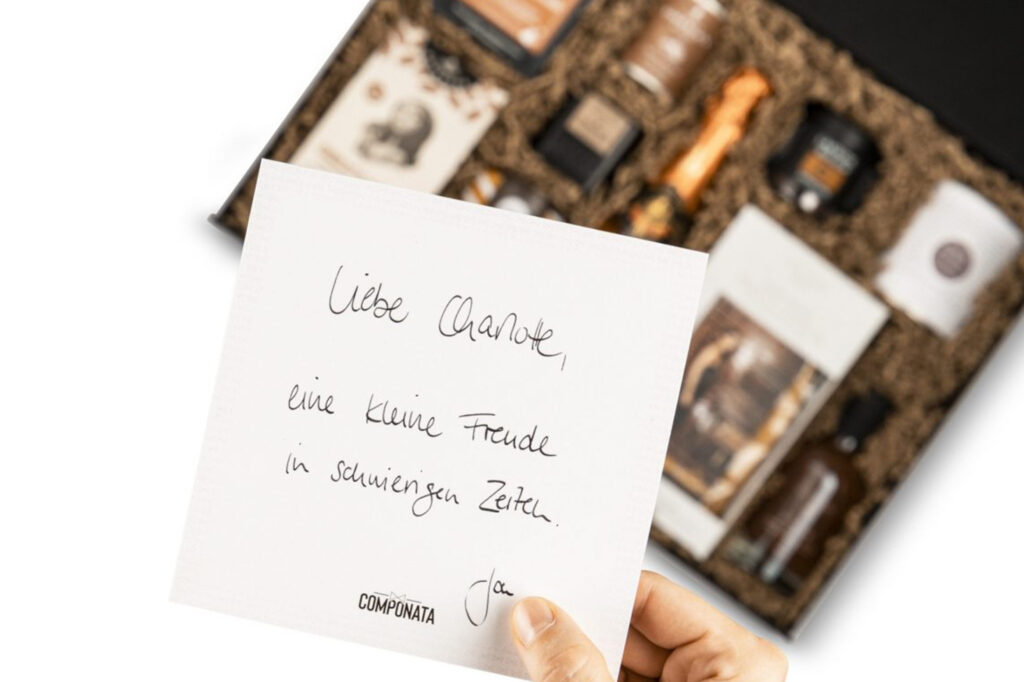 Liebe Charlotte,
eine kleine Freude
in schwierigen Zeiten.
Jan
COMPONATA